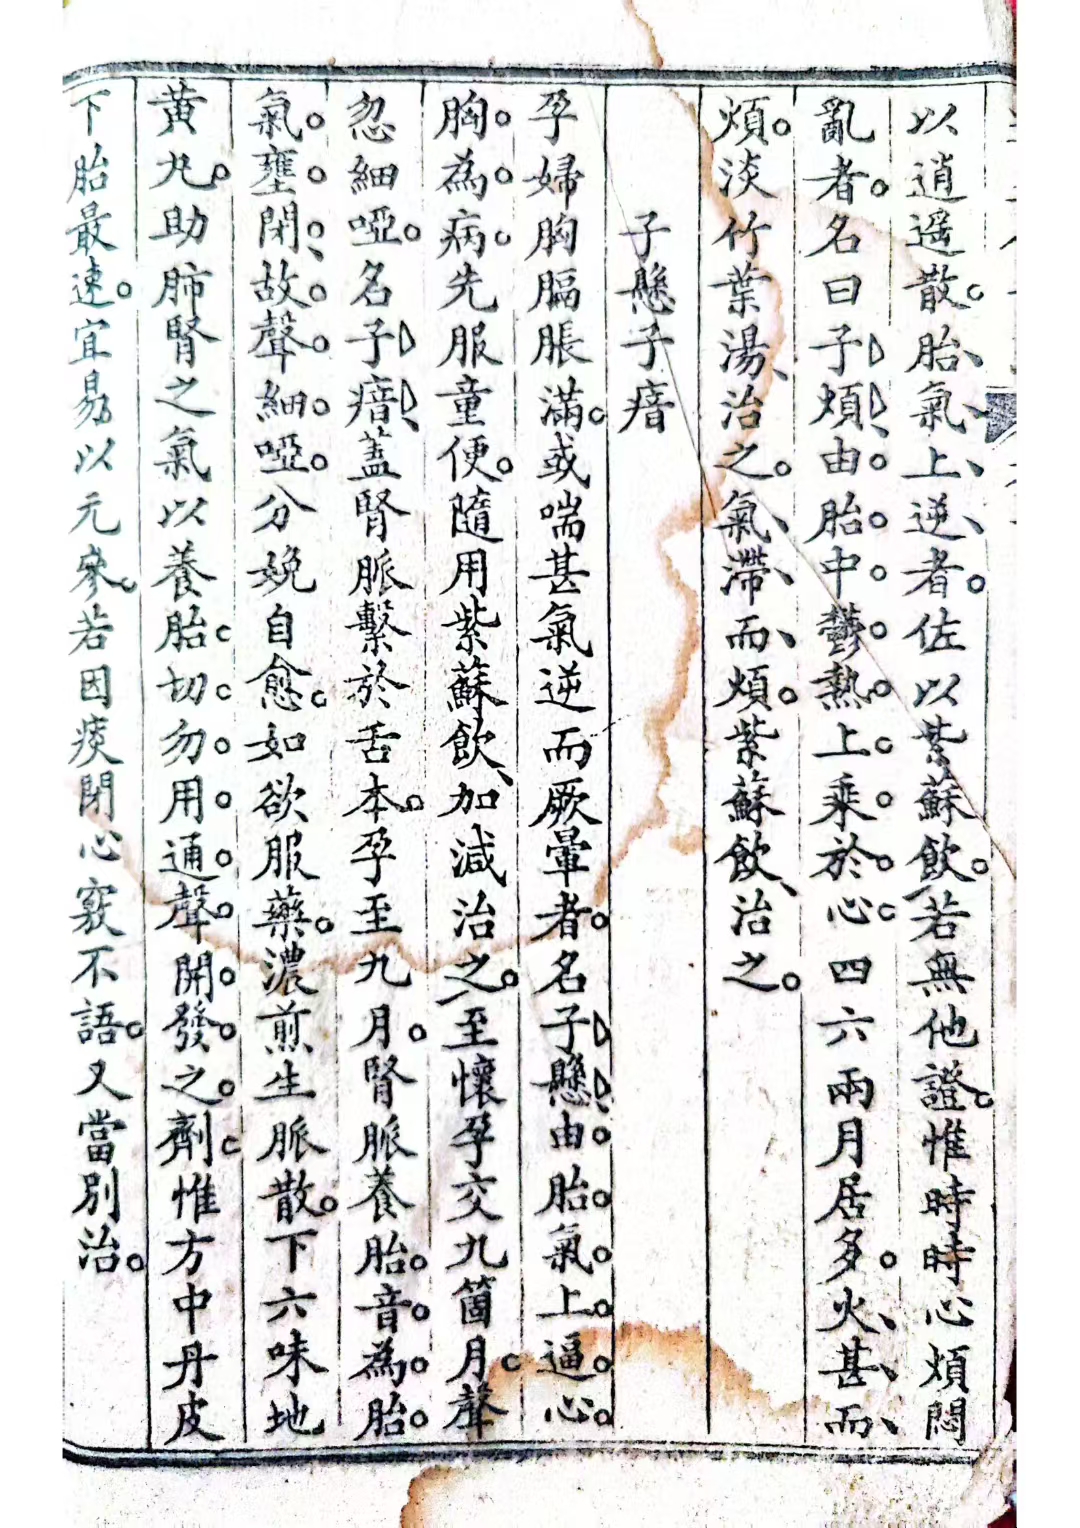 以逍遥散。胎氣上逆者。佐以紫蘇飲。若無他證。惟時時心煩悶
亂者。名曰子煩由胎中鬱熱上乘於心四六兩月居多。火甚而
煩。淡竹葉湯治之。氣滯而煩。紫蘇飲治之。
子懸子瘖
孕婦胸膈脹滿。或喘甚氣逆而厥暈者。名子懸由胎氣上逼心
胸為病先服童便。隨用紫蘇飲加減治之。至懷孕交九箇月。聲
忽細啞。名子瘖蓋腎脈繫於舌本。孕至九月。腎脈養胎。音為胎
氣壅閉故聲細啞。分娩自愈。如欲服藥。濃煎生脈散。下六味地
黃丸。助肺腎之氣以養胎。切勿用通聲開發之劑。惟方中丹皮
下胎最速。宜易以元參。若因痰閉心竅不語。又當別治。